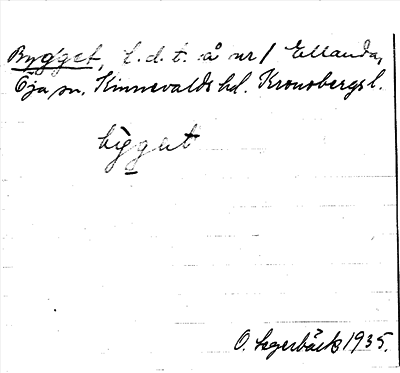 Bygget, t.d.t. å nr 1 Ellanda,
Öja sn. Kinnevalds hd. Kronobergs l.
bygget
O. Lagerbäck 1935.